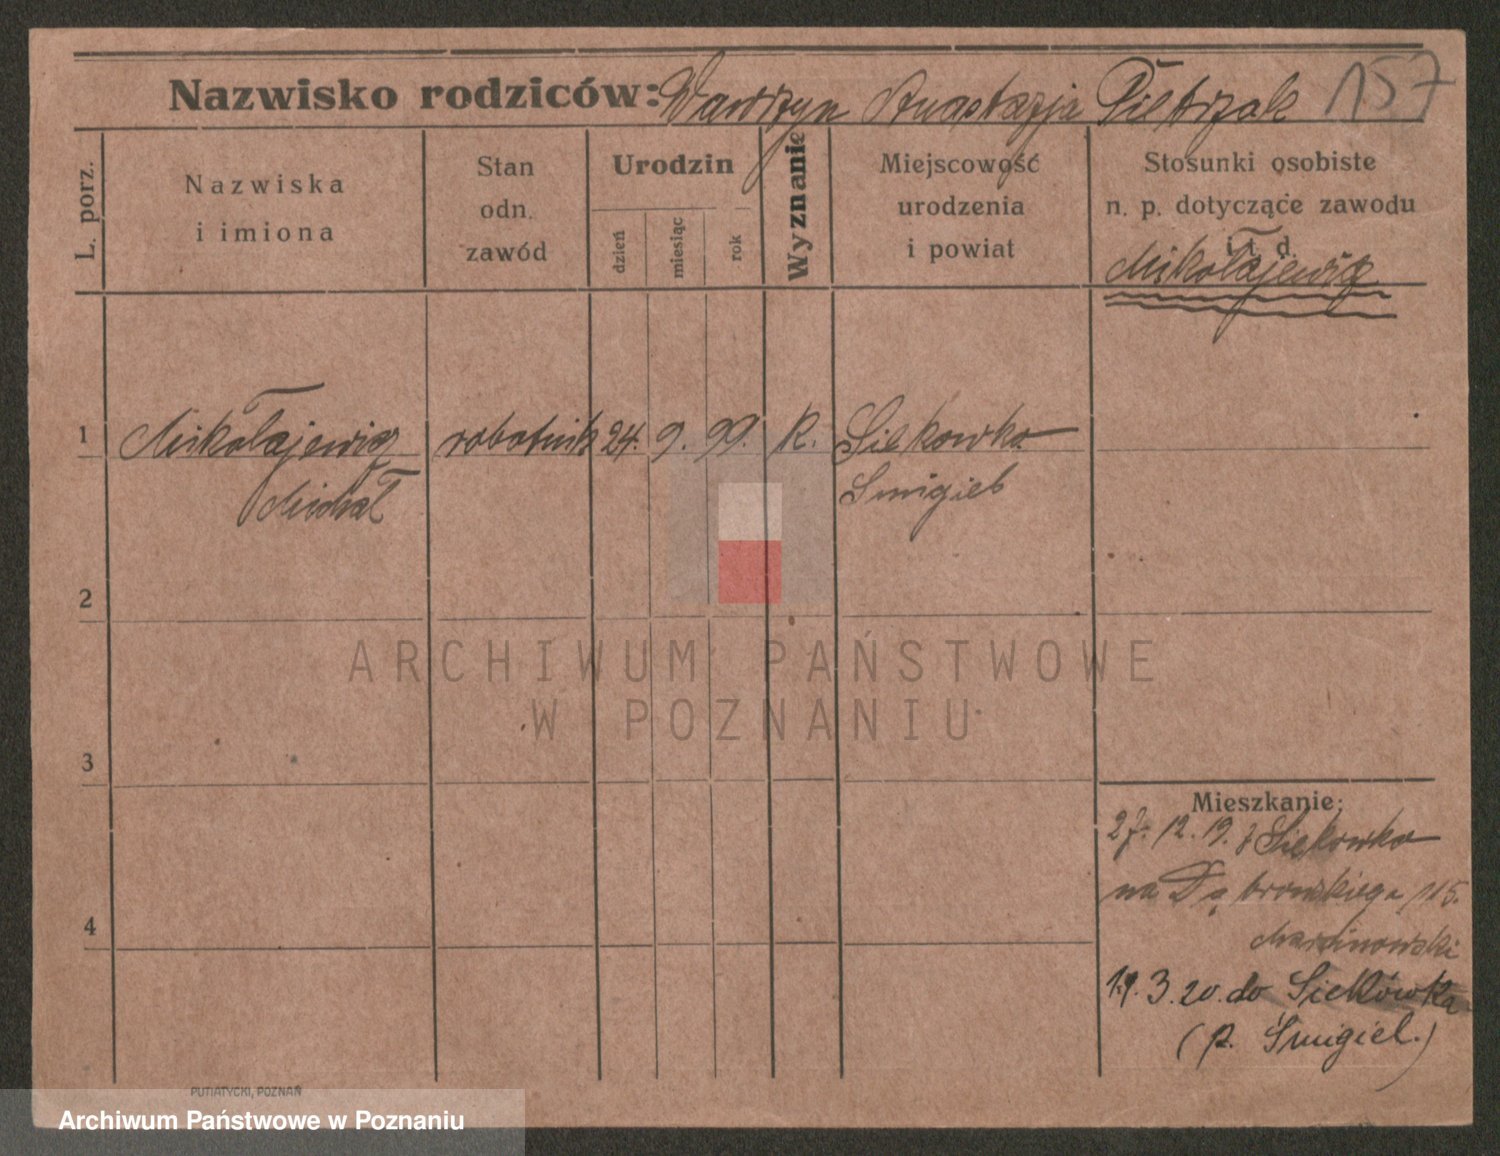 Nazwisko rodziców: Wawrzyn Anastazja Pietrzak 157
L. porz.
Nazwiska
i imiona
Stan
odn.
zawód
Urodzin
dzień
miesiąc
rok
Wyznanie
Miejscowość
urodzenia
i powiat
Stosunki osobiste
n. p. dotyczące zawodu
i t d.
Mikołajewicz
1 Mikołajewicz robotnik 24. 9. 99. K. Siekowko
Michał Smigiel
2
3
4
Mieszkanie:
27. 12. 19. z Siekowko
na Dąbrowskiego 115.
Marcinowski
19. 3. 20. do Siekówka
(p. Śmigiel.)
PUTIATYCKI, POZNAŃ
ARCHIWUM PAŃSTWOWE
W POZNANIU
Archiwum Państwowe w Poznaniu